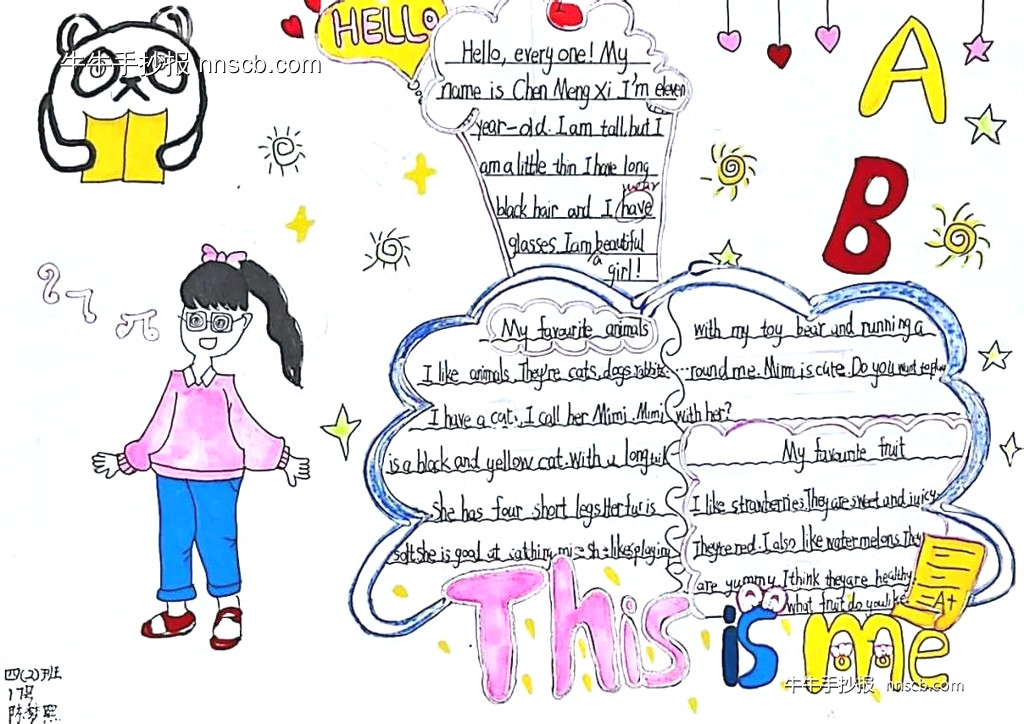 牛牛手抄报 nnscb.com
HELLO
Hello, every one! My
name is Chen Meng Xi I'm eleven
year-old. I am tall, but I
am a little thin I have long
wear
black hair and I have
glasses. I am beautiful
a girl!
My favourite animals
I like animals. They're cats, dogs, rabbits
I have a cat, I call her Mimi. Mimi
is a black and yellow cat. With a long tail
She has four short legs. Her fur is
soft. She is good at catching mice she likes playing
with my toy bear and running a
round me. Mimi is cute. Do you want to play
with her?
My favourite fruit
I like strawberries. They are sweet and juicy.
They're red. I also like watermelons. They
are yummy. I think they are healthy.
what fruit do you like
A+
This is me
A
B
四(2)班
17号
牛牛手抄报 nnscb.com